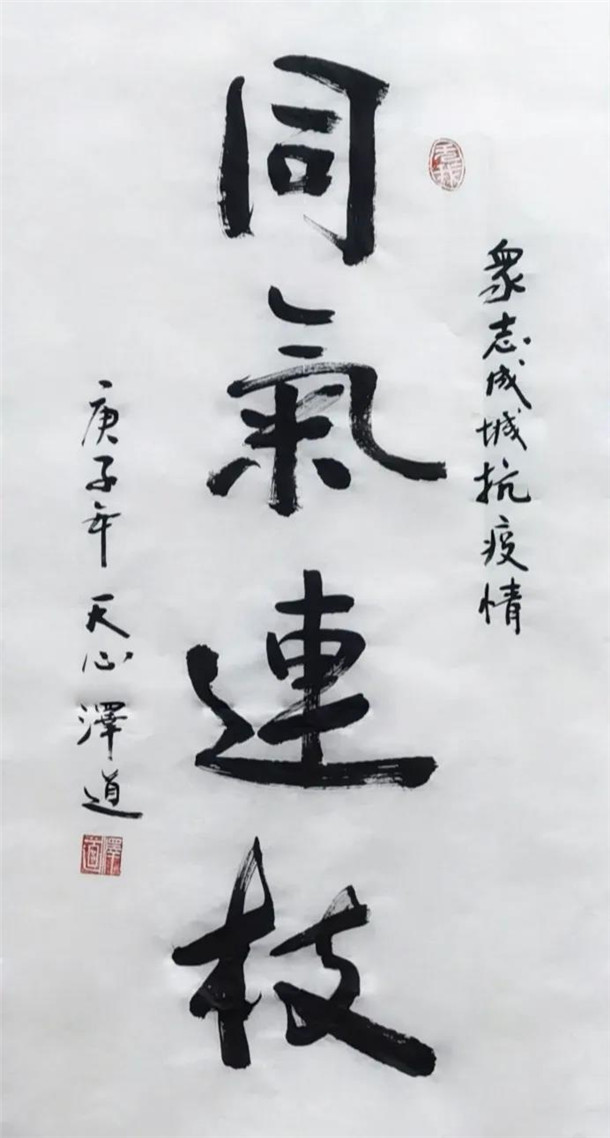 衆志成城抗疫情
同氣連枝
庚子年天心澤道
澤道